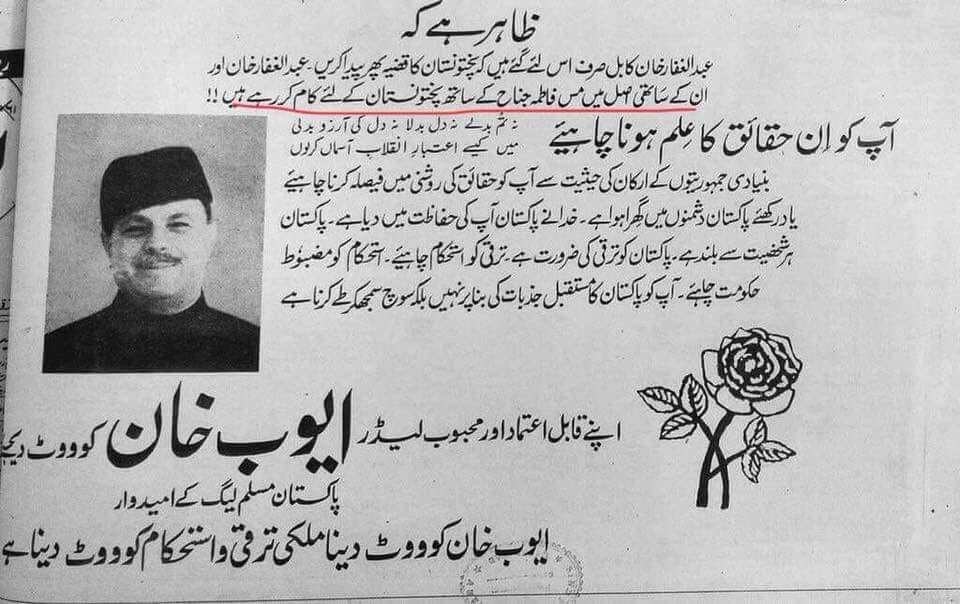 ظاہر ہے کہ
عبدالغفار خان کابل صرف اس لئے گئے ہیں کہ پختونستان کا قضیہ پھر پیدا کریں۔ عبدالغفار خان اور
ان کے ساتھی اصل میں مس فاطمہ جناح کے ساتھ پختونستان کے لئے کام کر رہے ہیں !!
نہ تم بدلے نہ دل بدلا نہ دل کی آرزو بدلی
میں کیسے اعتبارِ انقلابِ آسماں کرلوں
آپ کو اِن حقائق کا عِلم ہونا چاہیئے
بنیادی جمہوریتوں کے ارکان کی حیثیت سے آپ کو حقائق کی روشنی میں فیصلہ کرنا چاہیئے
یاد رکھئے پاکستان دشمنوں میں گھرا ہوا ہے۔ خدا نے پاکستان آپ کی حفاظت میں دیا ہے۔ پاکستان
ہر شخصیت سے بلند ہے۔ پاکستان کو ترقی کی ضرورت ہے۔ ترقی کو استحکام چاہیئے۔ استحکام کو مضبوط
حکومت چاہئے۔ آپ کو پاکستان کا مستقبل جذبات کی بنا پر نہیں بلکہ سوچ سمجھ کر طے کرنا ہے
اپنے قابل اعتماد اور محبوب لیڈر ایوب خان کو ووٹ دیجئے
پاکستان مسلم لیگ کے امیدوار
ایوب خان کو ووٹ دینا ملکی ترقی و استحکام کو ووٹ دینا ہے